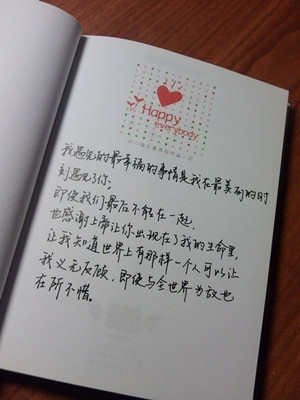 Happy
everybody
我遇见的最幸福的事情是我在最美的时
刻遇见了你,
即使我们最后不能在一起,
也感谢上帝让你出现在了我的生命里,
让我知道世界上有那样一个人可以让
我义无反顾,即使与全世界为敌也
在所不惜。